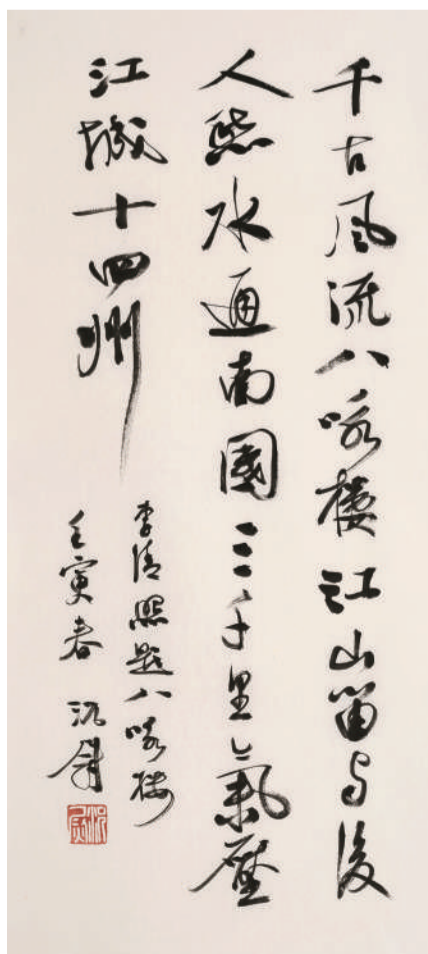 千古風流八咏樓江山留与後
人愁水通南國三千里氣壓
江城十四州
李清照題八咏樓
壬寅春